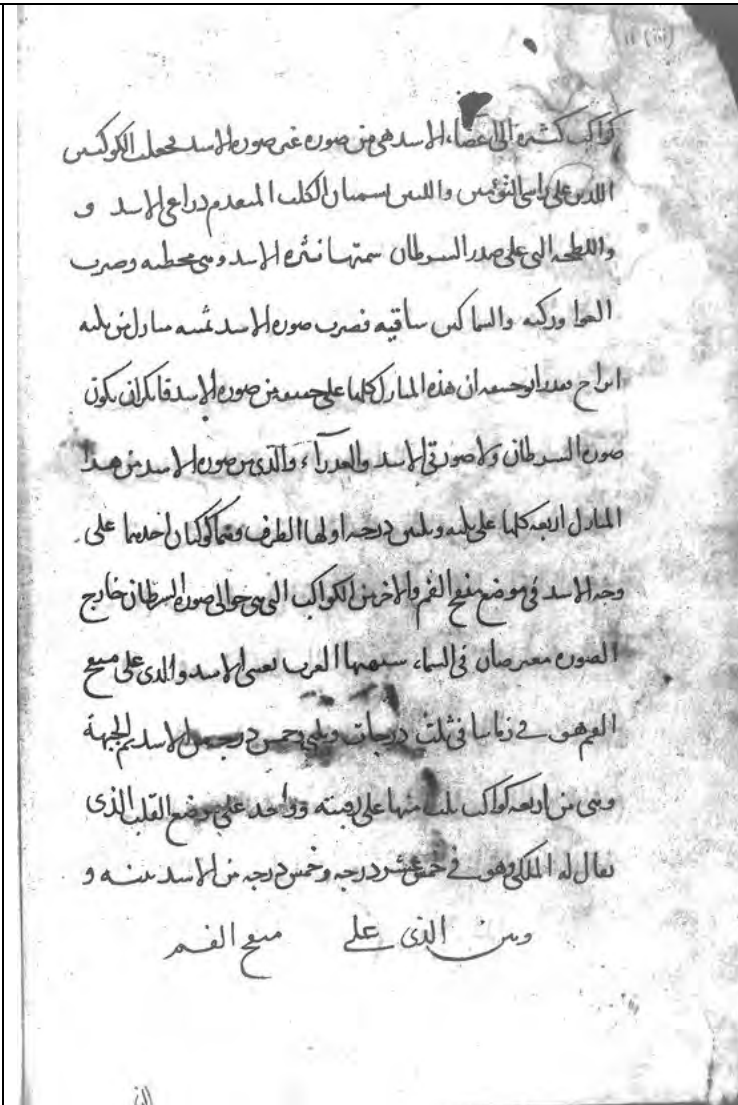 كواكب كثيرة الى اعضاء الاسد هى من صورة غير صورة الاسد فجعلت الكوكبين
اللذين على راسى التوئمين واللذين يسميان الكلب المتقدم ذراعى الاسد و
واللطخه التى على صدر السرطان سمتها نثرة الاسد وهى مخطته وصيرت
العوا وركيه والسماكين ساقيه فصيرت صورة الاسد ثمنيه منازل من ثلثه
ابراج فقدر ابو حنيفه ان هذه المنازل كلها على حقيقه من صورة الاسد فانكر ان يكون
صورة السرطان ولا صورتى الاسد والعذرآء والذى من صورة الاسد من هذا
المنازل اربعه كلها على ثلثه وثلثين درجه اولها الطرف وهما كوكبان احدهما على
وجه الاسد فى موضع منفح الفم والاخر من الكواكب التى هى حوالى صورة السرطان خارج
الصوره معترضان فى السماء سمتهما العرب عينى الاسد والذى على منفح
الفم هو فى زماننا فى ثلث درجات وثلثى وخمس درجه من الاسد ثم الجبهة
وهى من اربعه كواكب ثلث منها على رقبته وواحد على موضع القلب الذى
يقال له الملكى وهو فى خمس عشر درجه وخمس درجه من الاسد بينه و
وبين الذى على منفح الفم